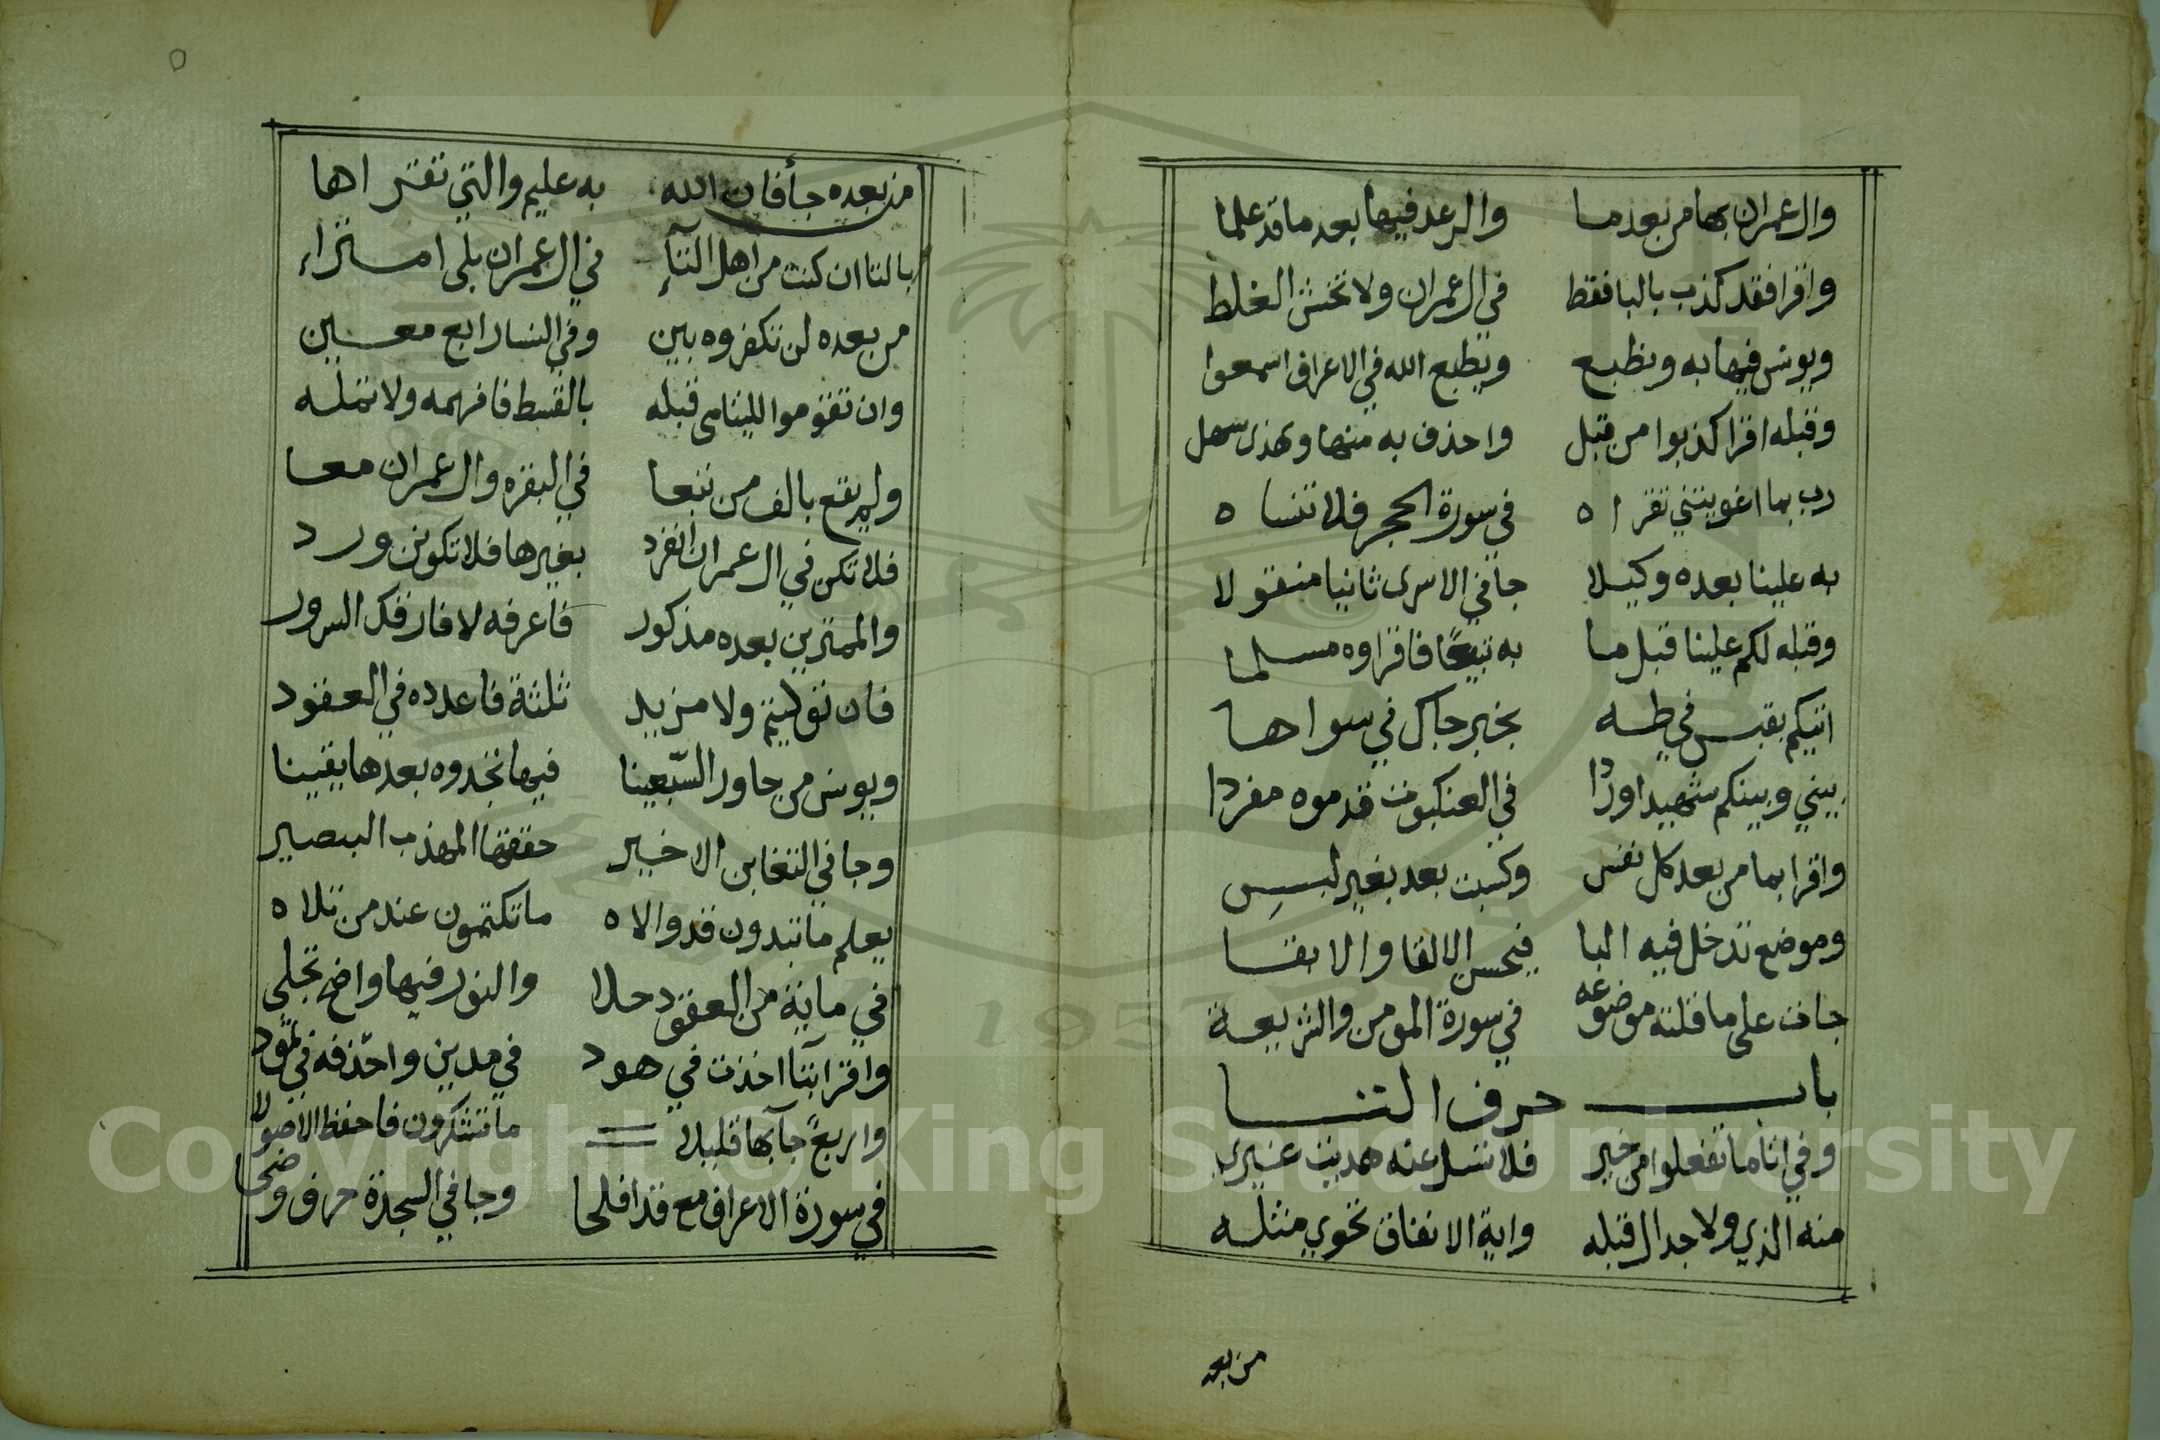 وال عمران بها من بعد ما والرعد فيها بعد ما قد علما
واقرا فقد كذب بالبا فقط في ال عمران ولا تخش الغلط
ويونس فيها به ونطبع ويطبع الله في الاعراف اسمعوا
وقبله اقرا كذبوا من قبل واحذف به منها وهذى سهل
رب بما اغويتني تقراه في سورة الحجر فلا تنساه
به علينا بعده وكيلا جا في الاسرى ثانيا منقولا
وقبله لكم علينا قبل ما به تبيعًا فاقراوه مسلما
اتيكم بقبس في طه بخبر جاك في سواها
بيني وبينكم شهيدا وردا في العنكبوت قدموه مفردا
واقرا بما من بعد كل نفس وكسبت بعد بغير لبس
وموضع تدخل فيه البا فيحسن الالقا والابقا
جات على ما قلته موضوعه في سورة المومن والشريعة
باب حرف التا
وفي اتا ما تفعلوا من خير فلا تسل عنه هديت غيرى
منه الذي ولا جدال قبله واية الانفاق تحوي مثله
من بعد
من بعده جا فان الله به عليم والتي تقراها
بالتا ان كنت من اهل التآء في ال عمران بلى امتراء
من بعده لن تكفروه بين وفي النسا رابع معين
وان تقوموا لليتامى قبله بالقسط فافهمه ولا تمله
ولم يقع بالف من تبعا في البقره وال عمران معا
فلا تكن في ال عمران انفرد بغيرها فلا تكونن ورد
والممترين بعده مذكور فاعرفه لا فارقك السرور
فان توليتم ولا مزيد ثلثة فاعدده في العقود
ويونس من جاور السبعينا فيها تجدوه بعدها يقينا
وجا في التغابن الاخير حققها المهذب البصير
يعلم ما تبدون قد والاه ما تكتمون عند من تلاه
في ماية من العقود حلا والنور فيها واضح تجلى
واقرا بتا اخذت في هود في مدين واحذفه في ثمود
واربع جا بها قليلا ما تتذكرون فاحفظ الاصولا
في سورة الاعراف مع قد افلحا وجا في السجدة حرف وضحا
Copyright © King Saud University
1957